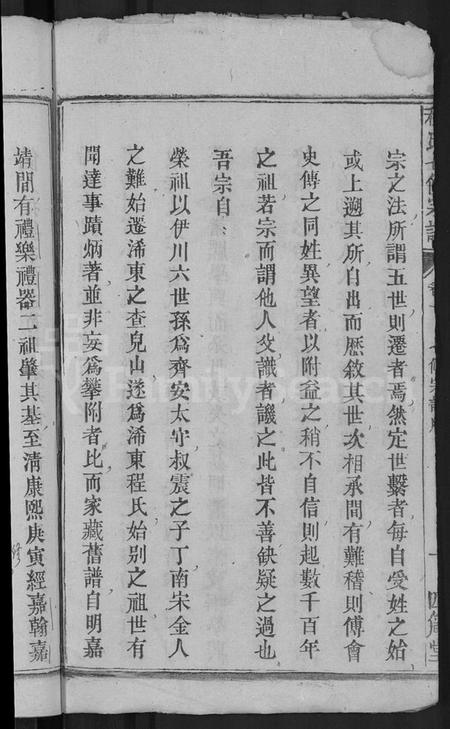 宗之法所謂五世則遷者焉然定世繫者每自受姓之始
或上遡其所自出而歷敘其世次相承間有難稽則傅會
史傳之同姓異望者以附益之稍不自信則起數千百年
之祖若宗而謂他人父識者譏之此皆不善缺疑之過也
吾宗自
榮祖以伊川六世孫爲齊安太守叔震之子丁南宋金人
之難始遷浠東之查兒山遂爲浠東程氏始別之祖世有
聞達事蹟炳著並非妄爲攀附者比而家藏舊譜自明嘉
靖間有禮樂禮器二祖肇其基至清康熙庚寅經嘉翰嘉
FamilySearch